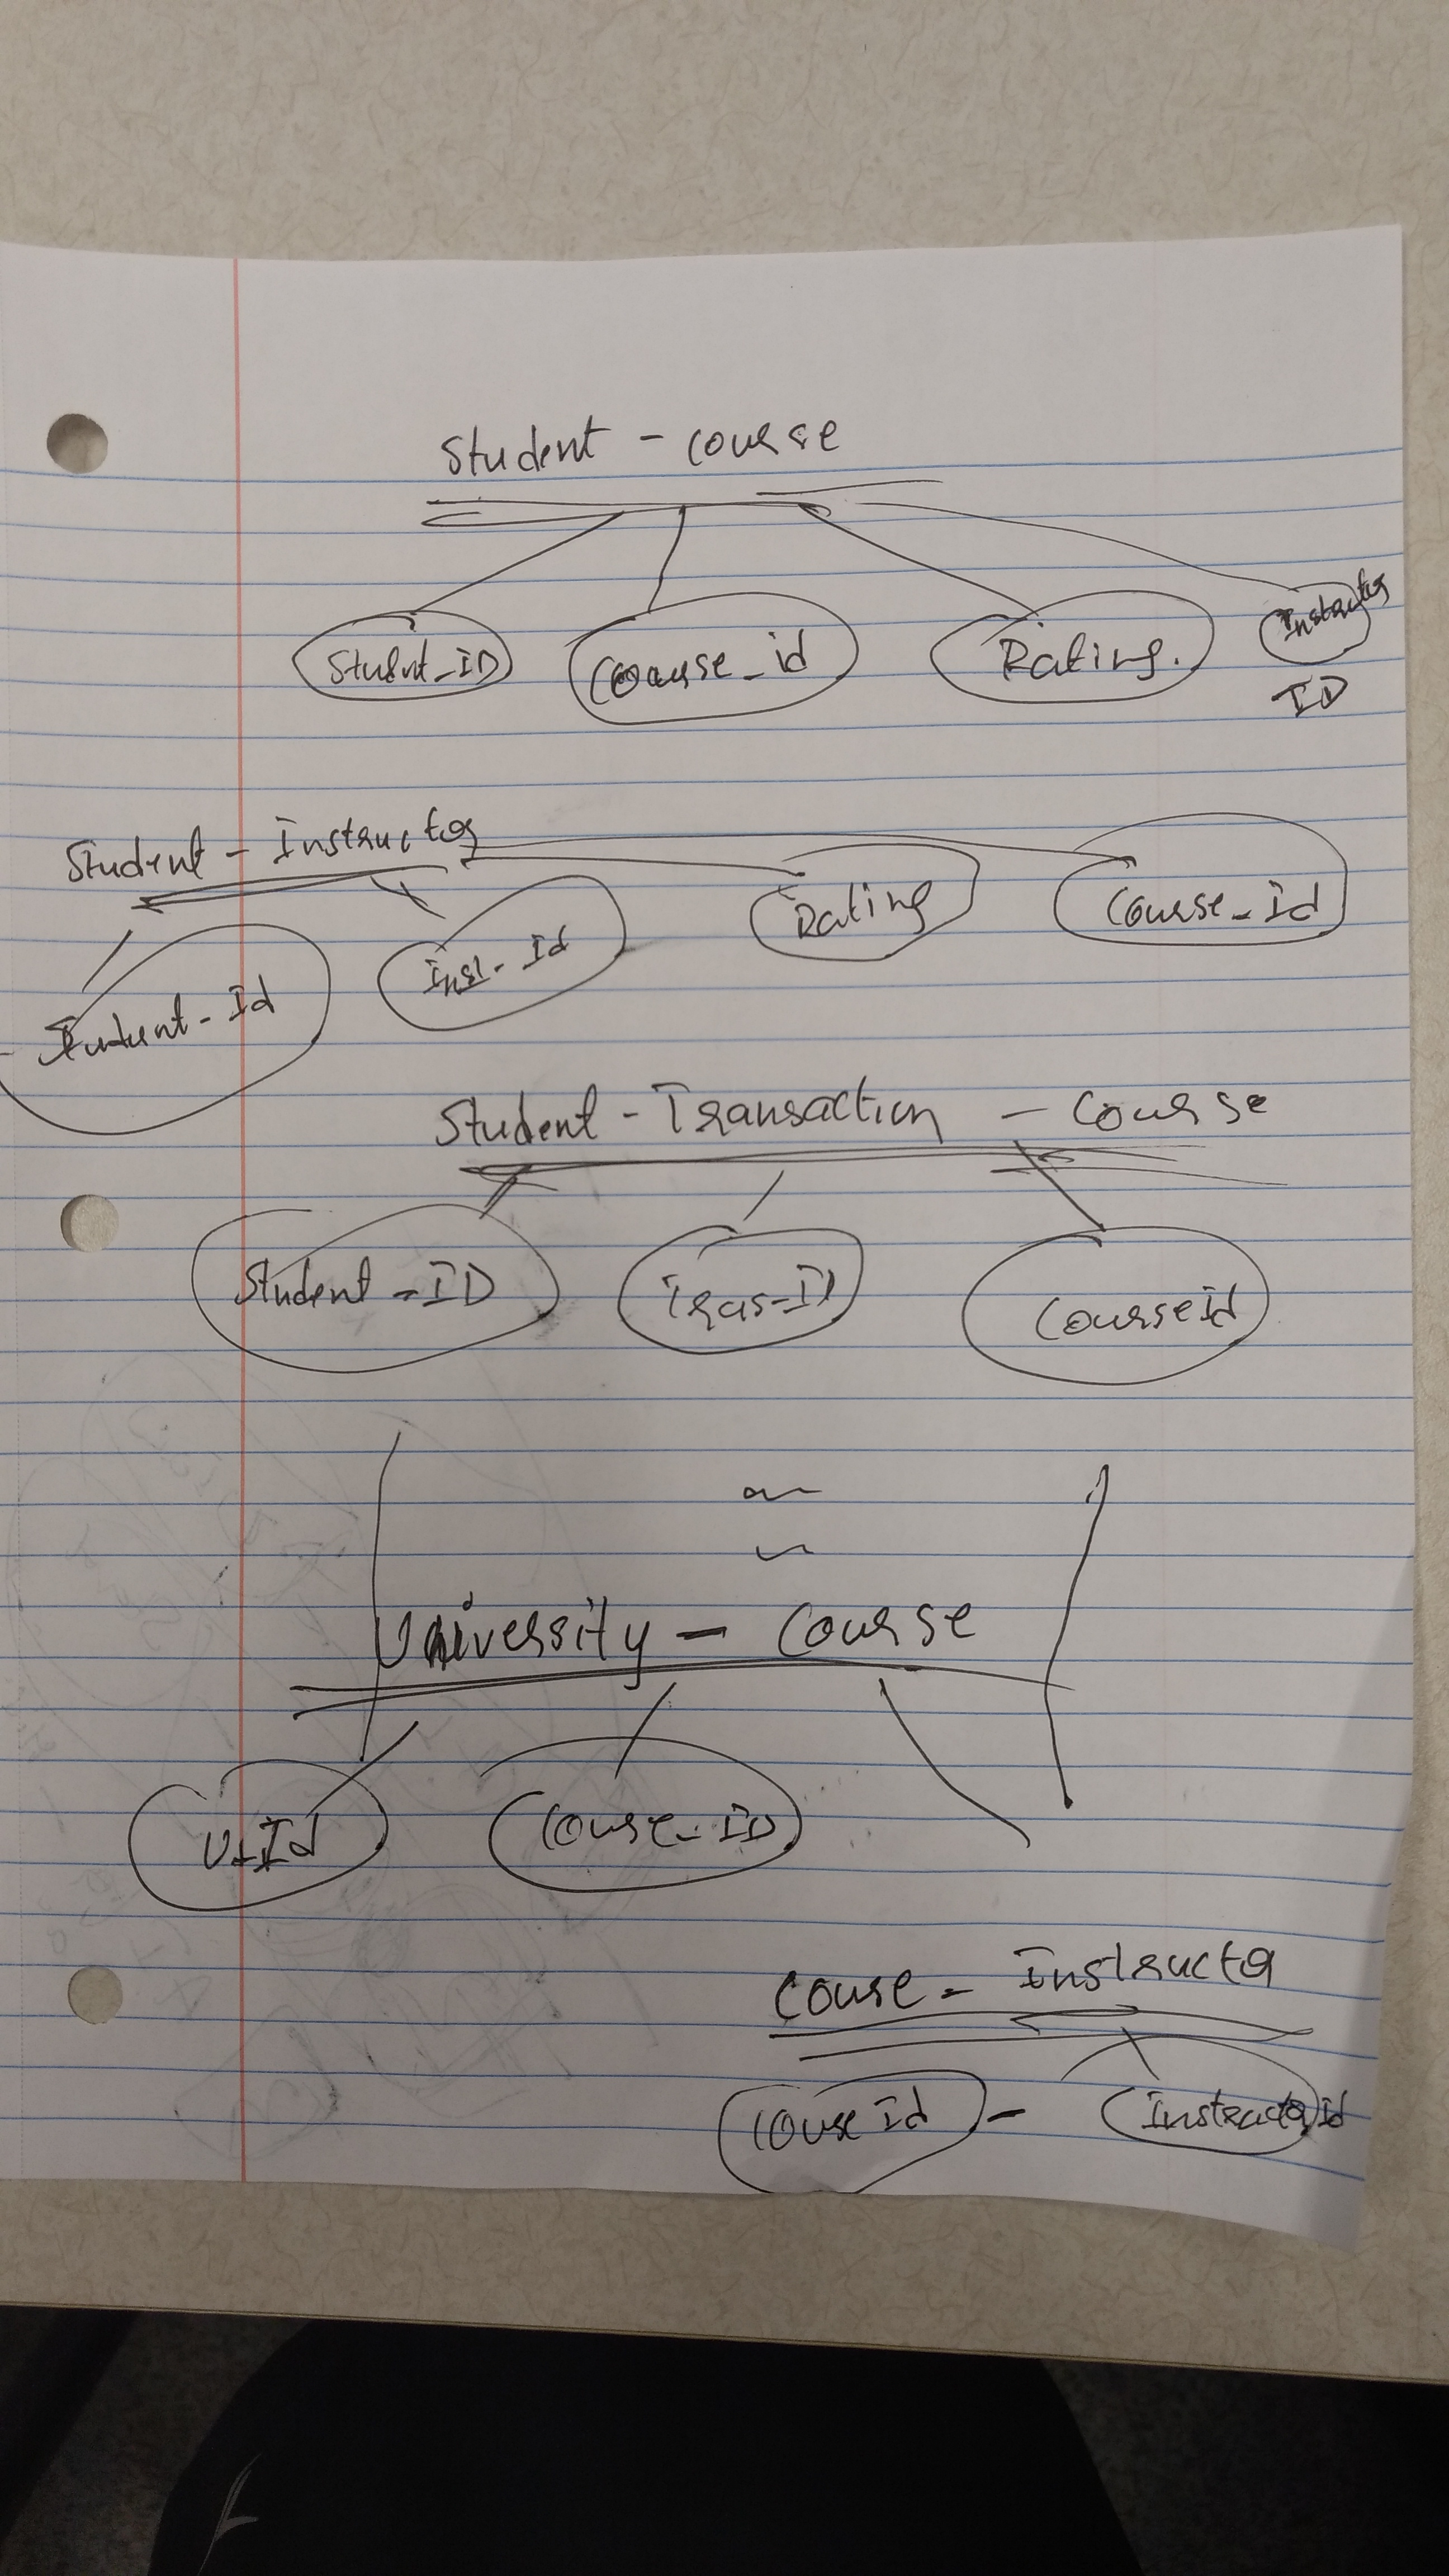 Student - Course
Student_ID Course_id Rating. Instructor
ID
Student - Instructor
Rating Course_Id
Student-Id Inst-Id
Student - Transaction - Course
Student-ID Tras-ID Course id
University - Course
U_Id Course_ID
Course - Instructor
Course id - Instructor id